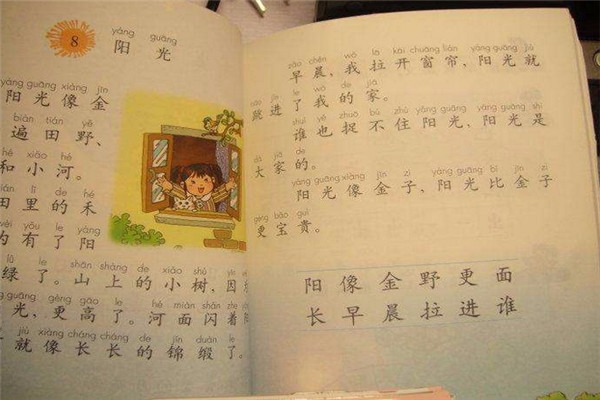 8
yáng guāng
阳 光
yáng guāng xiàng jīn
阳光像金
biàn tián yě
遍田野、
hé xiǎo hé
和小河。
tián lǐ de hé
田里的禾
wèi yǒu le yáng
为有了阳
lǜ le shān shàng de xiǎo shù yīn
绿了。山上的小树,因
guāng gèng gāo le hé miàn shǎn zhe
光,更高了。河面闪着
jiù xiàng cháng cháng de jǐn duàn le
就像长长的锦缎了。
zǎo chén wǒ lā kāi chuāng lián yáng guāng jiù
早晨,我拉开窗帘,阳光就
tiào jìn le wǒ de jiā
跳进了我的家。
shuí yě zhuō bú zhù yáng guāng yáng guāng shì
谁也捉不住阳光,阳光是
dà jiā de
大家的。
yáng guāng xiàng jīn zi yáng guāng bǐ jīn zi
阳光像金子,阳光比金子
gèng bǎo guì
更宝贵。
阳像金野更面
长早晨拉进谁